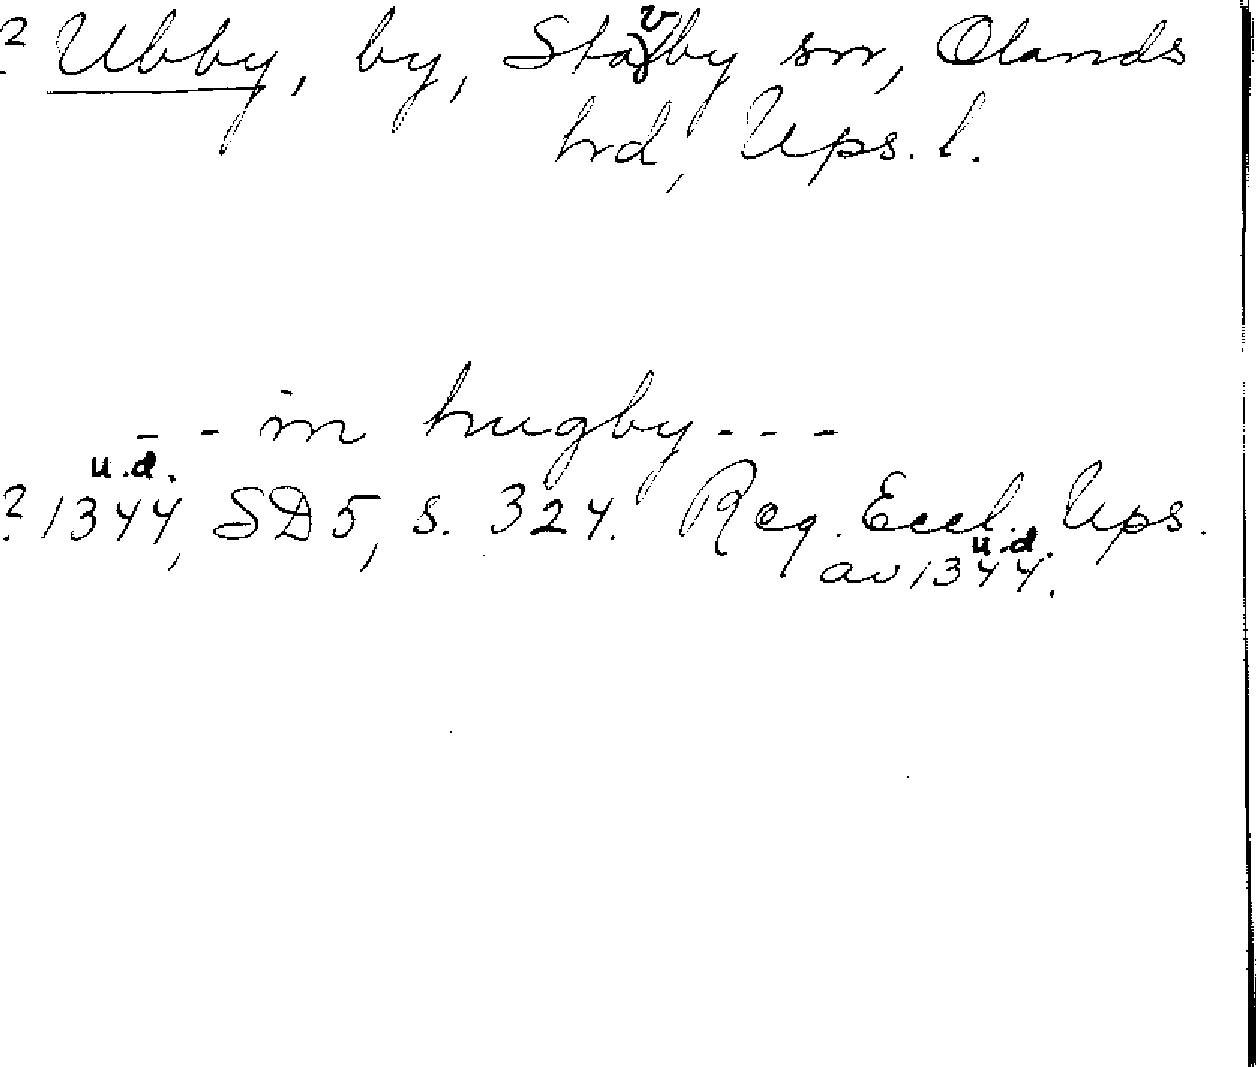 ? Ubby, by, Stavby sn, Olands
hrd, Ups. l.
- - in hugby - - -
u.d.
? 1344, SD 5, s. 324. Reg. Eccl. Ups.
u.d.
av 1344.